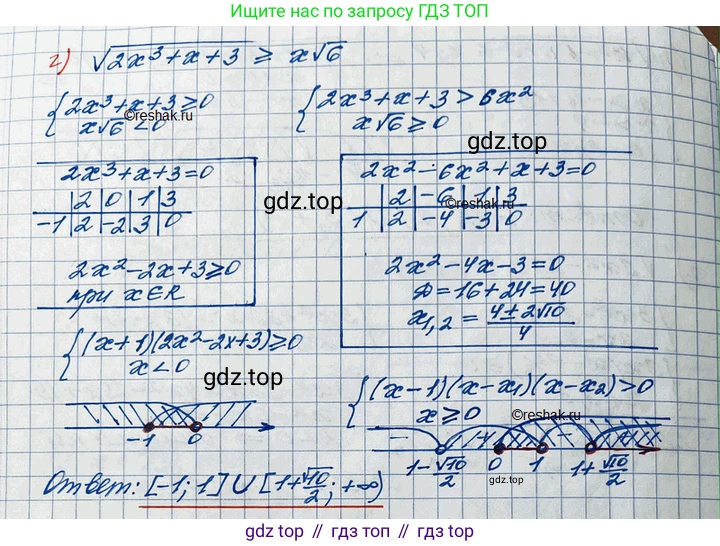 Ищите нас по запросу ГДЗ ТОП
г) √(2x³+x+3) ≥ x√6
{2x³+x+3≥0
x√6 <0
©reshak.ru
{2x³+x+3>6x²
x√6≥0
gdz.top
2x³+x+3=0
|2|0|1|3
-1|2|-2|3|0
2x²-2x+3≥0
при x∈R
gdz.top
2x²-6x²+x+3=0
|2|-6|1|3
1|2|-4|-3|0
©reshak.ru
2x²-4x-3=0
D=16+24=40
x₁,₂ = (4±2√10)/4
{(x+1)(2x²-2x+3)≥0
x<0
gdz.top
-1 0
{(x-1)(x-x₁)(x-x₂)>0
x≥0
©reshak.ru
- + - +
1-√10/2 0 1 1+√10/2
gdz.top
Ответ: [-1; 1] U [1+√10/2; +∞)
gdz.top // гдз.топ // gdz.top